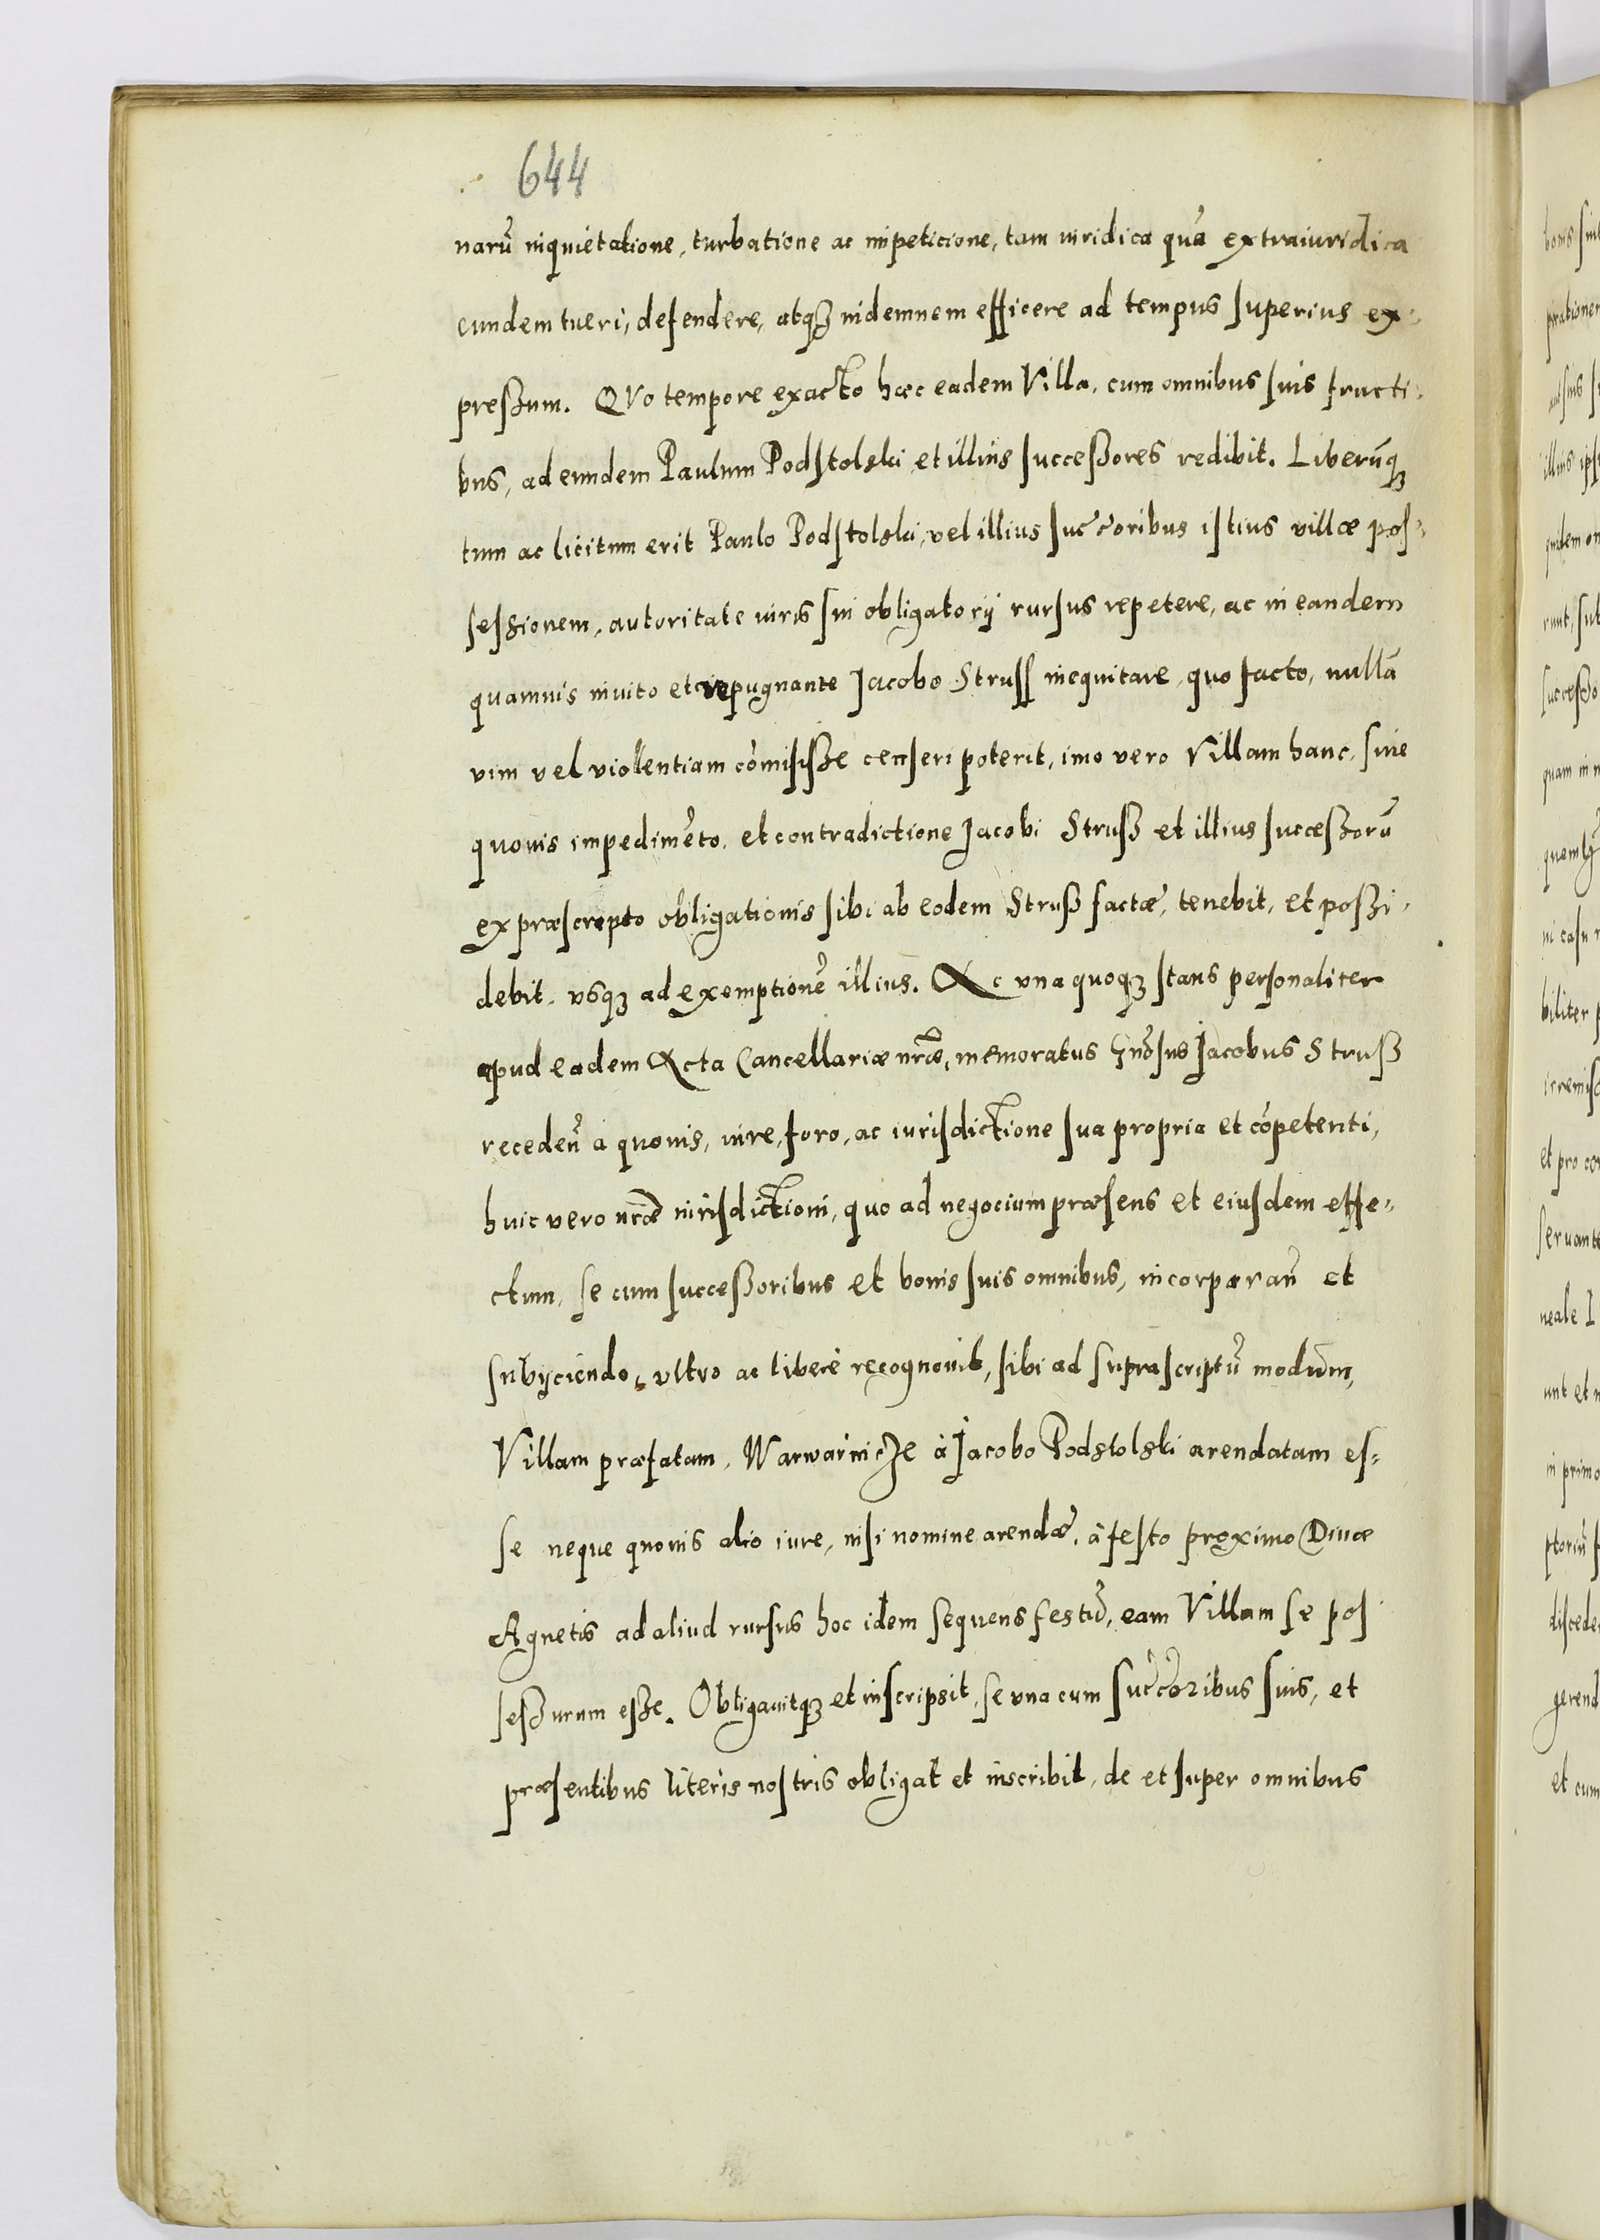 644
narū inquietatione, turbatione ac impeticione, tam iuridica quā extraiuridica
eundem tueri, defendere, atqȝ indemnem efficere ad tempus superius ex-
preßum. QVo tempore exacto hæc eadem Villa, cum omnibus suis fructi-
bus, ad eundem Paulum Podstolski et illius succeßores redibit. Liberūqȝ
tum ac licitum erit Paulo Podstolski, vel illius succ̃oribus istius villæ pos-
sessionem, autoritate iuris sui obligatorij rursus repetere, ac in eandem
quamuis inuito et repugnante Jacobo Struss inequitare, quo facto, nullā
vim vel violentiam cōmisisße censeri poterit, imo vero Villam hanc, sine
quouis impedimēto, et contradictione Jacobi Struß et illius succeßorū
ex præscripto obligationis sibi ab eodem Struß factæ, tenebit, et poßi-
debit, vsqȝ ad exemptionē illius. Ac vna quoqȝ stans personaliter
apud eadem Acta Cancellariæ nr̃æ, memoratus Gn̄osus Jacobus Struß
recedeñ a quouis, iure, foro, ac iurisdictione sua propria et cōpetenti,
huic vero nr̃æ iurisdictioni, quo ad negocium præsens et eiusdem effe-
ctum, se cum succeßoribus et bonis suis omnibus, incorporañ et
subijciendo, vltro ac liberè recognouit, sibi ad suprascriptū modum,
Villam præfatam, Warwarincze à Jacobo Podstolski arendatam es-
se neque quouis alio iure, nisi nomine arendæ, à festo proximo Diuæ
Agnetis ad aliud rursus hoc idem sequens festū, eam Villam se pos
seßurum eße. Obligauitqȝ et inscripsit, se vna cum succ̃oribus suis, et
præsentibus literis nostris obligat et inscribit, de et super omnibus